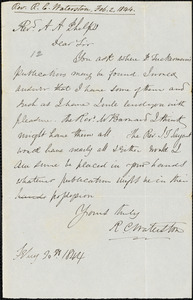 Rev. R. C. Waterston, Feb. 2, 1844.
Rev'd A. A. Phelps
Dear Sir
You ask where the
publications may be found. I would
answer that I have some of them and
such as I have I will lend you with
pleasure. The Rev. Mr Barnard I think
might have them all. The Rev. J.
would have nearly all I
am sure to be placed in your hands
whatever publication might be in their
possession
Yours truly
R C Waterston
1844